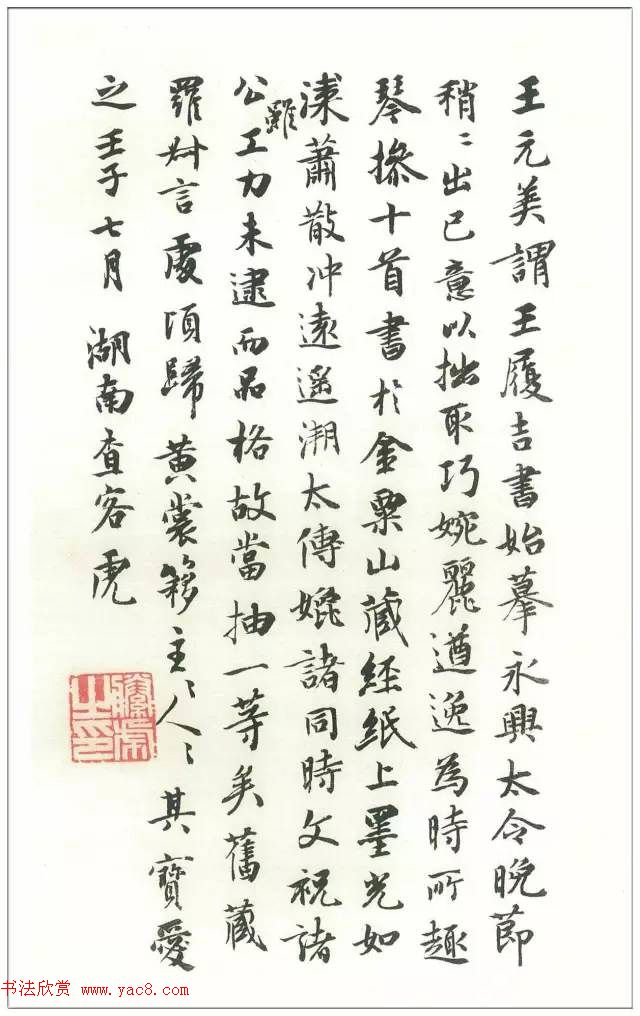 王元美謂王履吉書始摹永興太令晚節
稍ミ出已意以拙取巧婉麗遒逸為時所趣
琴操十首書於金粟山藏經紙上墨光如
漆蕭散冲遠遥溯太傅媲諸同時文祝諸
公雖工力未逮而品格故當抽一等矣舊藏
羅尗言處頃歸黃裳簃主ミ人ミ其寶愛
之壬子七月 湖南查客虎
書法欣赏 www.yac8.com